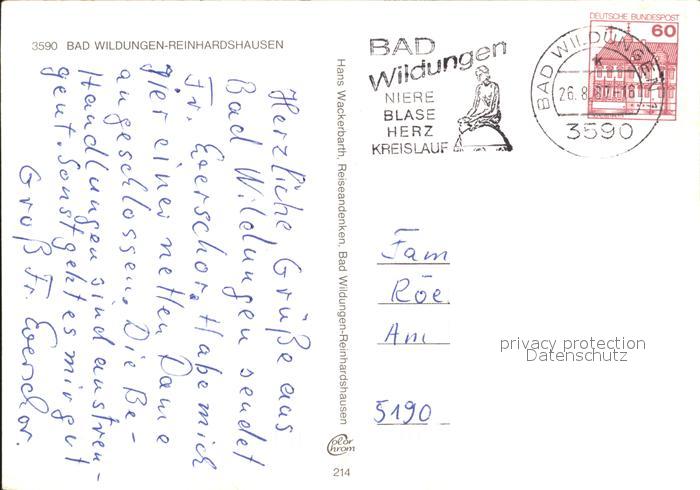 3590 BAD WILDUNGEN-REINHARDSHAUSEN
BAD
Wildungen
NIERE
BLASE
HERZ
KREISLAUF
BAD WILDUNGEN 1
26.8.80-16
3590
DEUTSCHE BUNDESPOST
60
Herzliche Grüße aus
Bad Wildungen sendet
Fr. Everschor. Habe mich
hier einer netten Dame
angeschlossen. Die Be-
Handlungen sind anstren-
gent. Sonst geht es mir gut
Gruß Fr. Everschor.
Hans Wackerbarth, Reiseandenken, Bad Wildungen-Reinhardshausen
Color
chrom
214
Fam
Röe.
Am
5190
privacy protection
Datenschutz